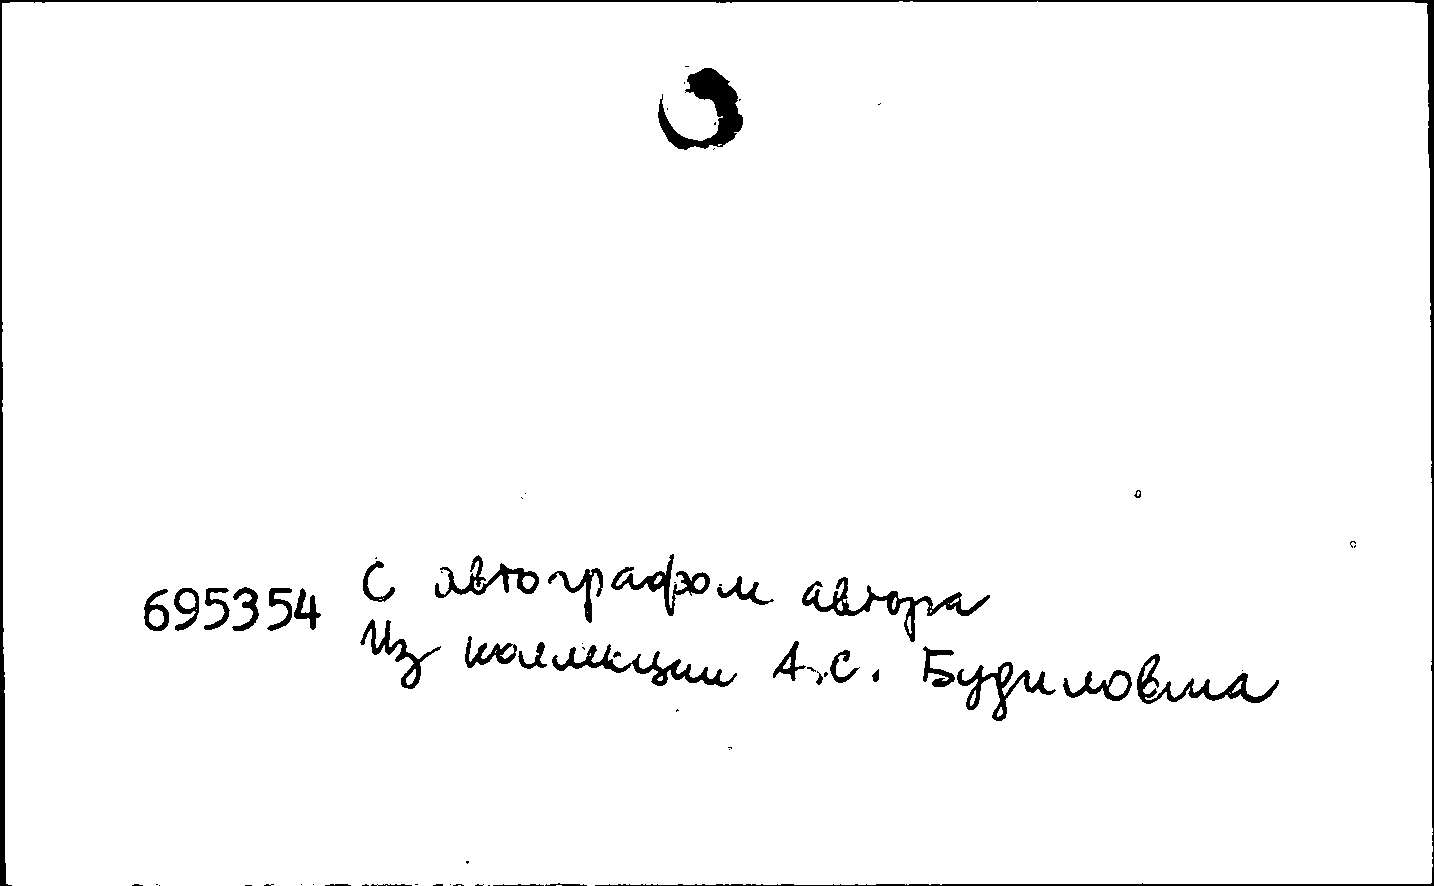 695354 С автографом автора
Из коллекции А.С. Будиловича